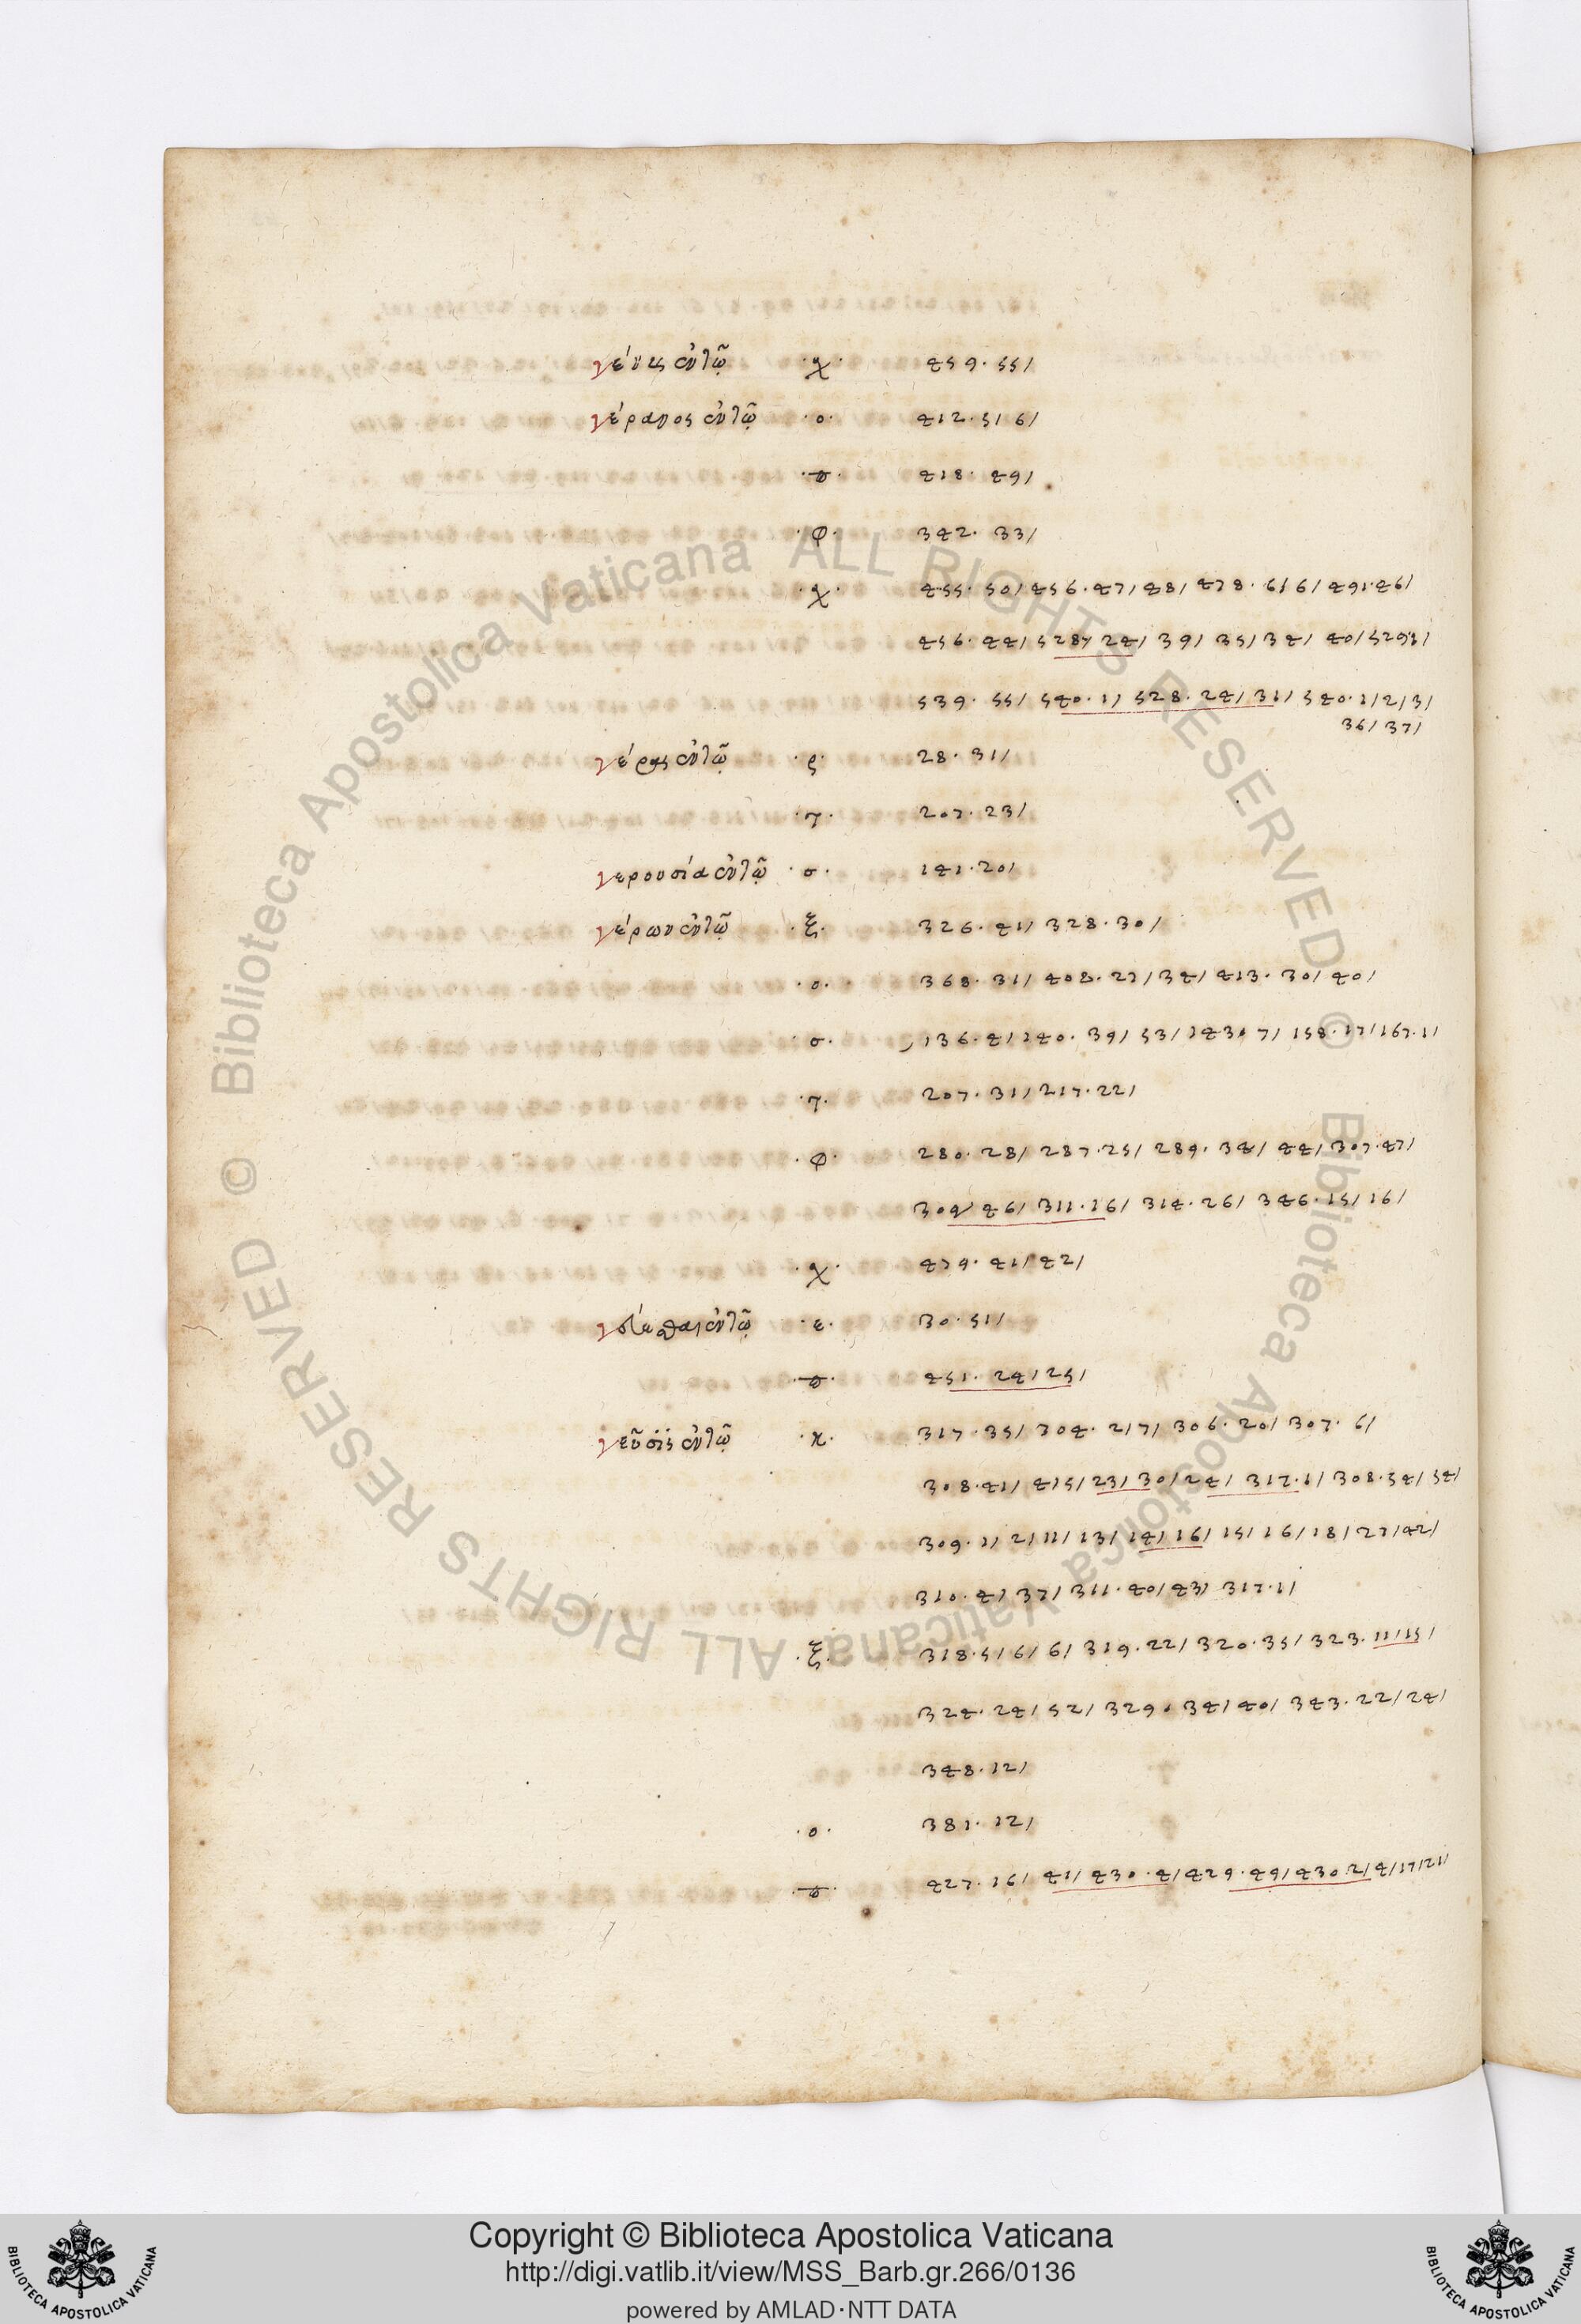 γένυς ἐν τῷ ·χ· 459·55/
γέρανος ἐν τῷ ·ο· 412·5/6/
·ϖ· 418·49/
·φ· 342·33/
·χ· 455·50/456·47/48/478·6/6/491·46/
456·44/528/24/39/35/34/40/529·1/
539·55/540·1/528·24/31/540·1/2/3/
36/37/
γέρας ἐν τῷ ·ρ· 28·31/
·τ· 207·23/
γερουσία ἐν τῷ ·σ· 141·20/
γέρων ἐν τῷ ·ξ· 326·41/328·30/
·ο· 368·31/408·27/34/413·30/40/
·σ· 136·4/140·39/53/143·7/158·17/167·1/
·τ· 207·31/217·22/
·φ· 280·28/287·25/289·34/44/307·47/
309/46/311·16/314·26/346·15/16/
·χ· 479·41/42/
γεύεσθαι ἐν τῷ ·ε· 30·51/
·ϖ· 451·24/25/
γεῦσις ἐν τῷ ·κ· 317·35/304·2/7/306·20/307·6/
308·41/415/23/30/24/317·1/308·34/54/
309·1/2/11/13/14/16/15/16/18/27/42/
310·4/37/311·40/43/317·1/
·ξ· 318·5/6/6/319·22/320·35/323·11/15/
324·24/52/329·34/40/343·22/24/
348·12/
·ο· 381·12/
·ϖ· 427·16/41/430·4/429·49/430·2/4/17/21/
© Biblioteca Apostolica Vaticana ALL RIGHTS RESERVED © Biblioteca Apostolica Vaticana ALL RIGHTS RESERVED
Copyright © Biblioteca Apostolica Vaticana
http://digi.vatlib.it/view/MSS_Barb.gr.266/0136
powered by AMLAD·NTT DATA
BIBLIOTECA APOSTOLICA VATICANA
BIBLIOTECA APOSTOLICA VATICANA